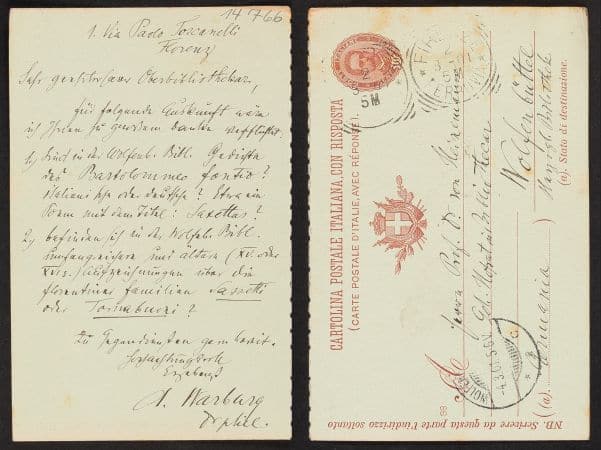 14766
1. Via Paolo Toscanelli
Florenz
Sehr geehrter Herr Oberbibliothekar,
für folgende Auskunft wäre
ich Ihnen zu großem Danke verpflichtet.
1) Sind in der Wolfenb. Bibl. Gedichte
des Bartolommeo Fontio?
italienische oder deutsche? Etwa ein
Poem mit dem Titel: Saxettus?
2) befinden sich in der Wolfenb. Bibl.
umfangreichere und ältere (XV. oder
XVI s.) Aufzeichnungen über die
florentiner Familien Sassetti
oder Tornabuoni?
Zu Gegendiensten gern bereit.
Hochachtungsvoll
Ergebenst
A. Warburg
Dr phil.
CARTOLINA POSTALE ITALIANA, CON RISPOSTA
(CARTE POSTALE D'ITALIE, AVEC RÉPONSE).
5M
A
Herrn Prof. Dr. von Heinemann
Oberbibliothekar
Wolfenbüttel
Herzogl. Bibliothek
Germania
(a)
(a). Stato di destinazione.
98
NB. Scrivere da questa parte l'indirizzo soltanto